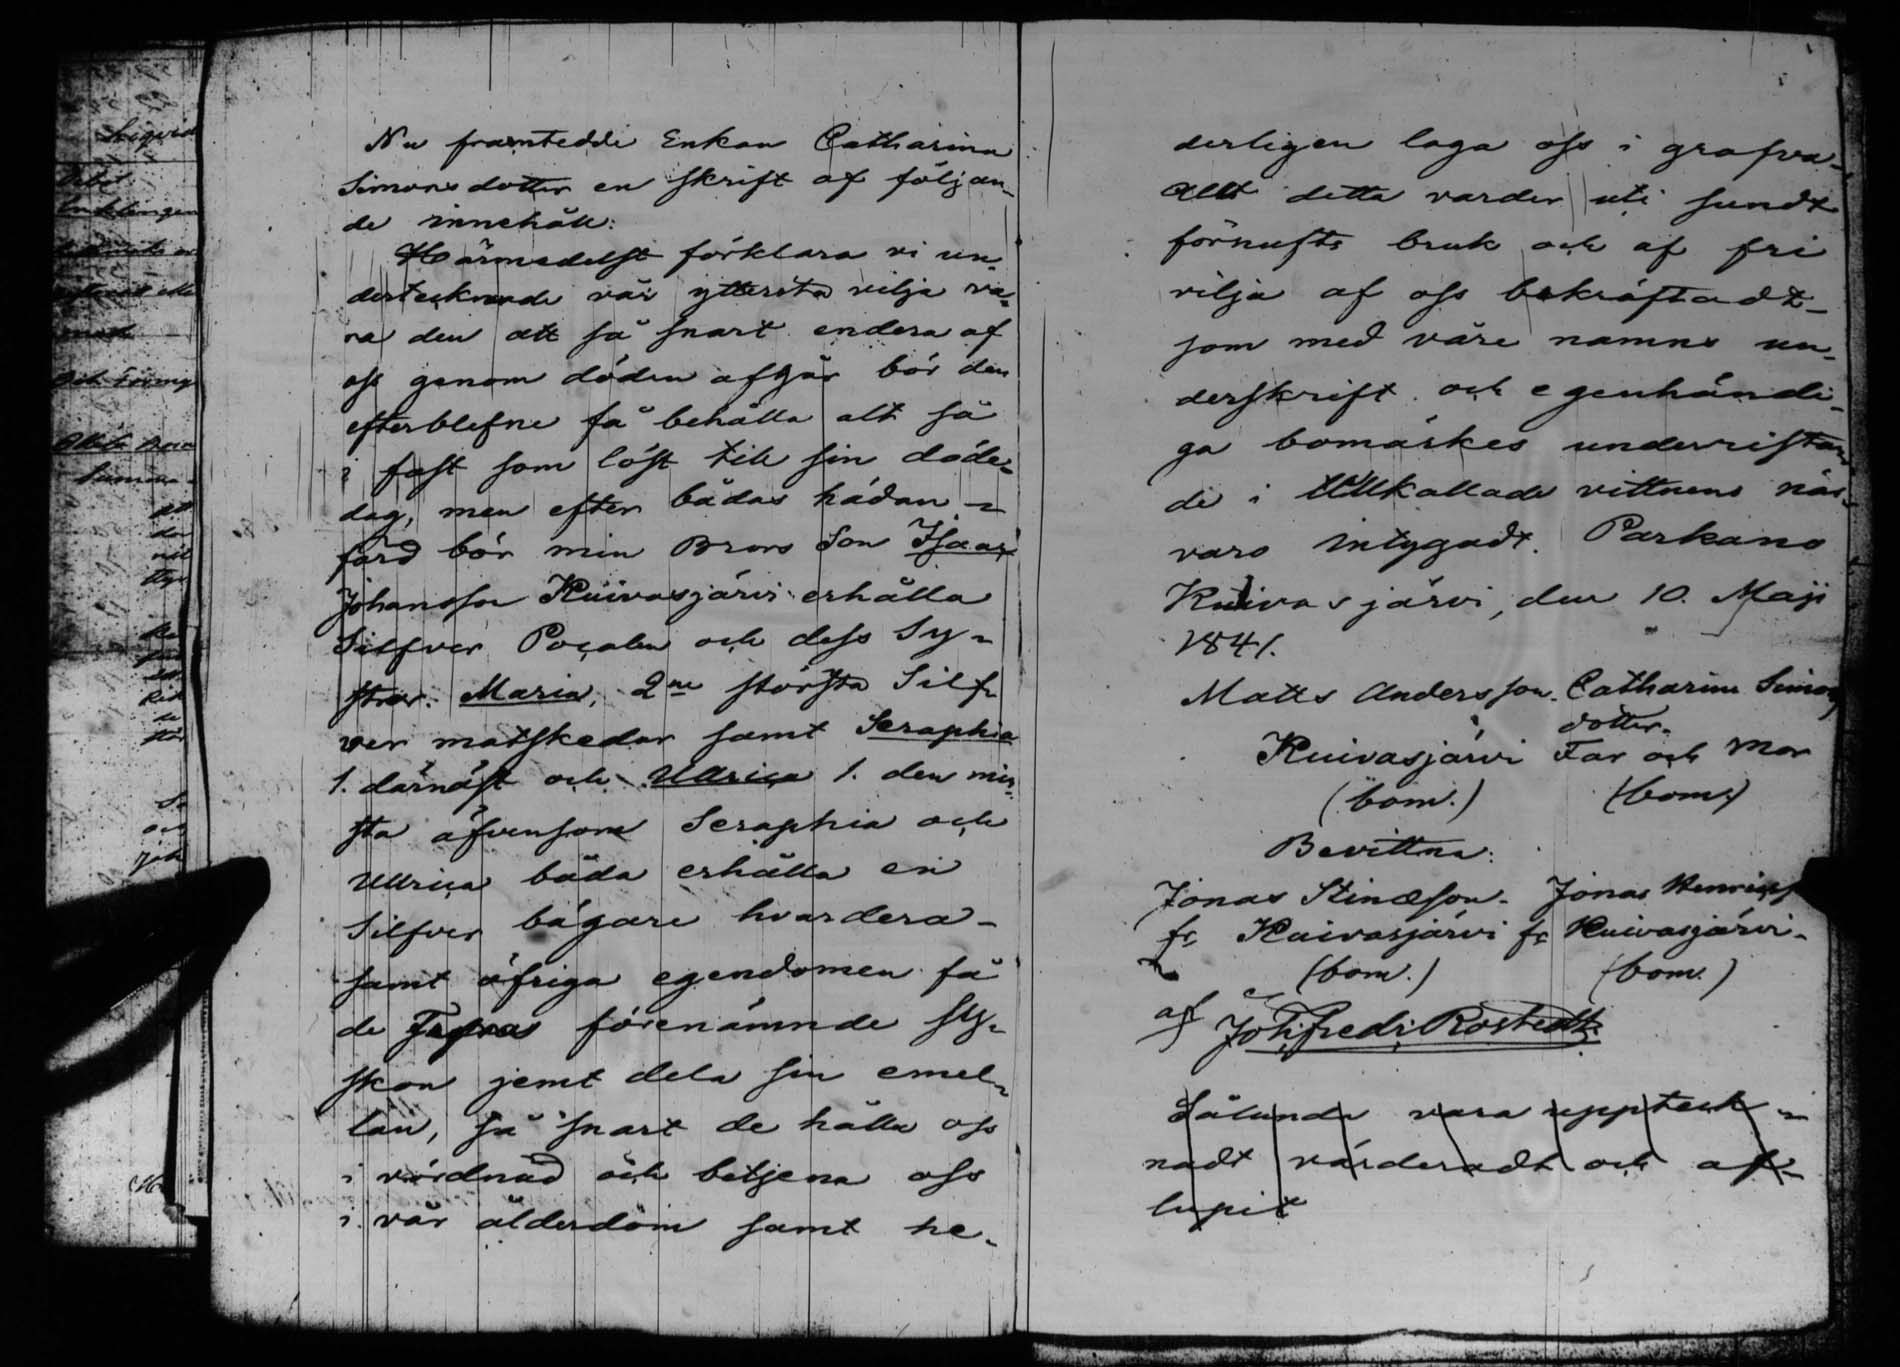 Nu framtedde Enkan Catharina
Simonsdotter en skrift af följan-
de innehåll:
Härmedelst förklara vi un-
dertecknade vår yttersta vilja va-
ra den att så snart endera af
oss genom döden afgår bör den
efterblefne få behålla alt så
i fast som löst till sin döde-
dag, men efter bådas hädan-
färd bör min Brors Son Isaac
Johansson Kuivasjärvi erhålla
Silfver Pocalen och dess Sy-
strar. Maria, 2ne största Silf-
ver matskedar samt Seraphia
1. därnäst och Ullrica 1. den min-
sta äfvensom Seraphia och
Ullrica båda erhålla en
Silfver bägare hvardera-
samt öfriga egendomen få
de förenämnde Sy-
skon jemt dela sin emel-
lan, så snart de hålla oss
i vördnad och betjena oss
i vår ålderdom samt he-
derligen laga oss i grafva-
Allt detta varder uti sundt
förnufts bruk och af fri
vilja af oss bekräftadt-
som med våre namns un-
derskrift och egenhändi-
ga bomärkes underristan-
de i tillkallade vittnens när-
varo intygadt. Parkano
Kuivasjärvi, den 10. Maji
1841.
Matts Andersson. Catharina Simons
dotter.
Kuivasjärvi Far och Mor
(bom.) (bom.)
Bevittna:
Jonas Stinæson. Jonas Henricss
fr. Kuivasjärvi fr Kuivasjärvi-
(bom.) (bom.)
af Joh. Fredr. Rostedt.
Sålunda vara uppteck-
nadt värderadt och af-
lupit